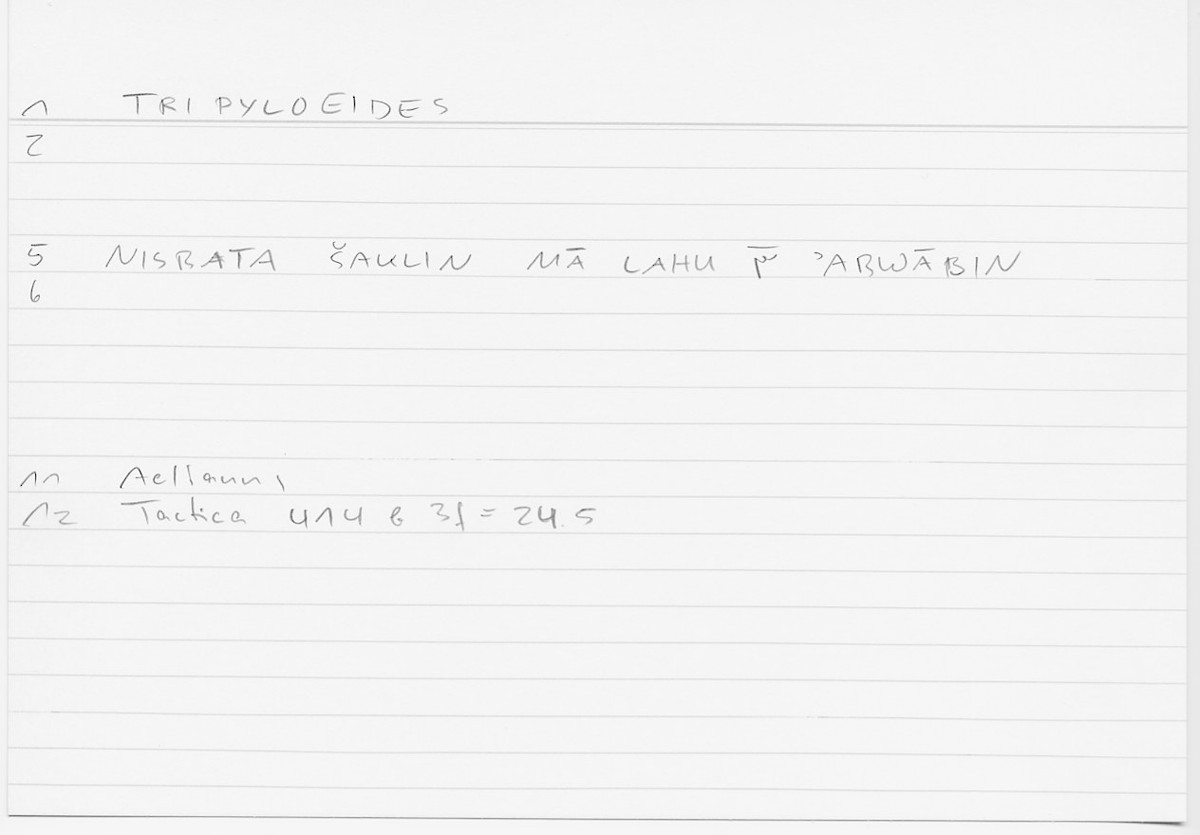 1 TRIPYLOEIDES
2
5 NISBATA ŠAKLIN MĀ LAHU ʾABWĀBIN
6
11 Aelianus
12 Tactica 414 b 3f = 24.5